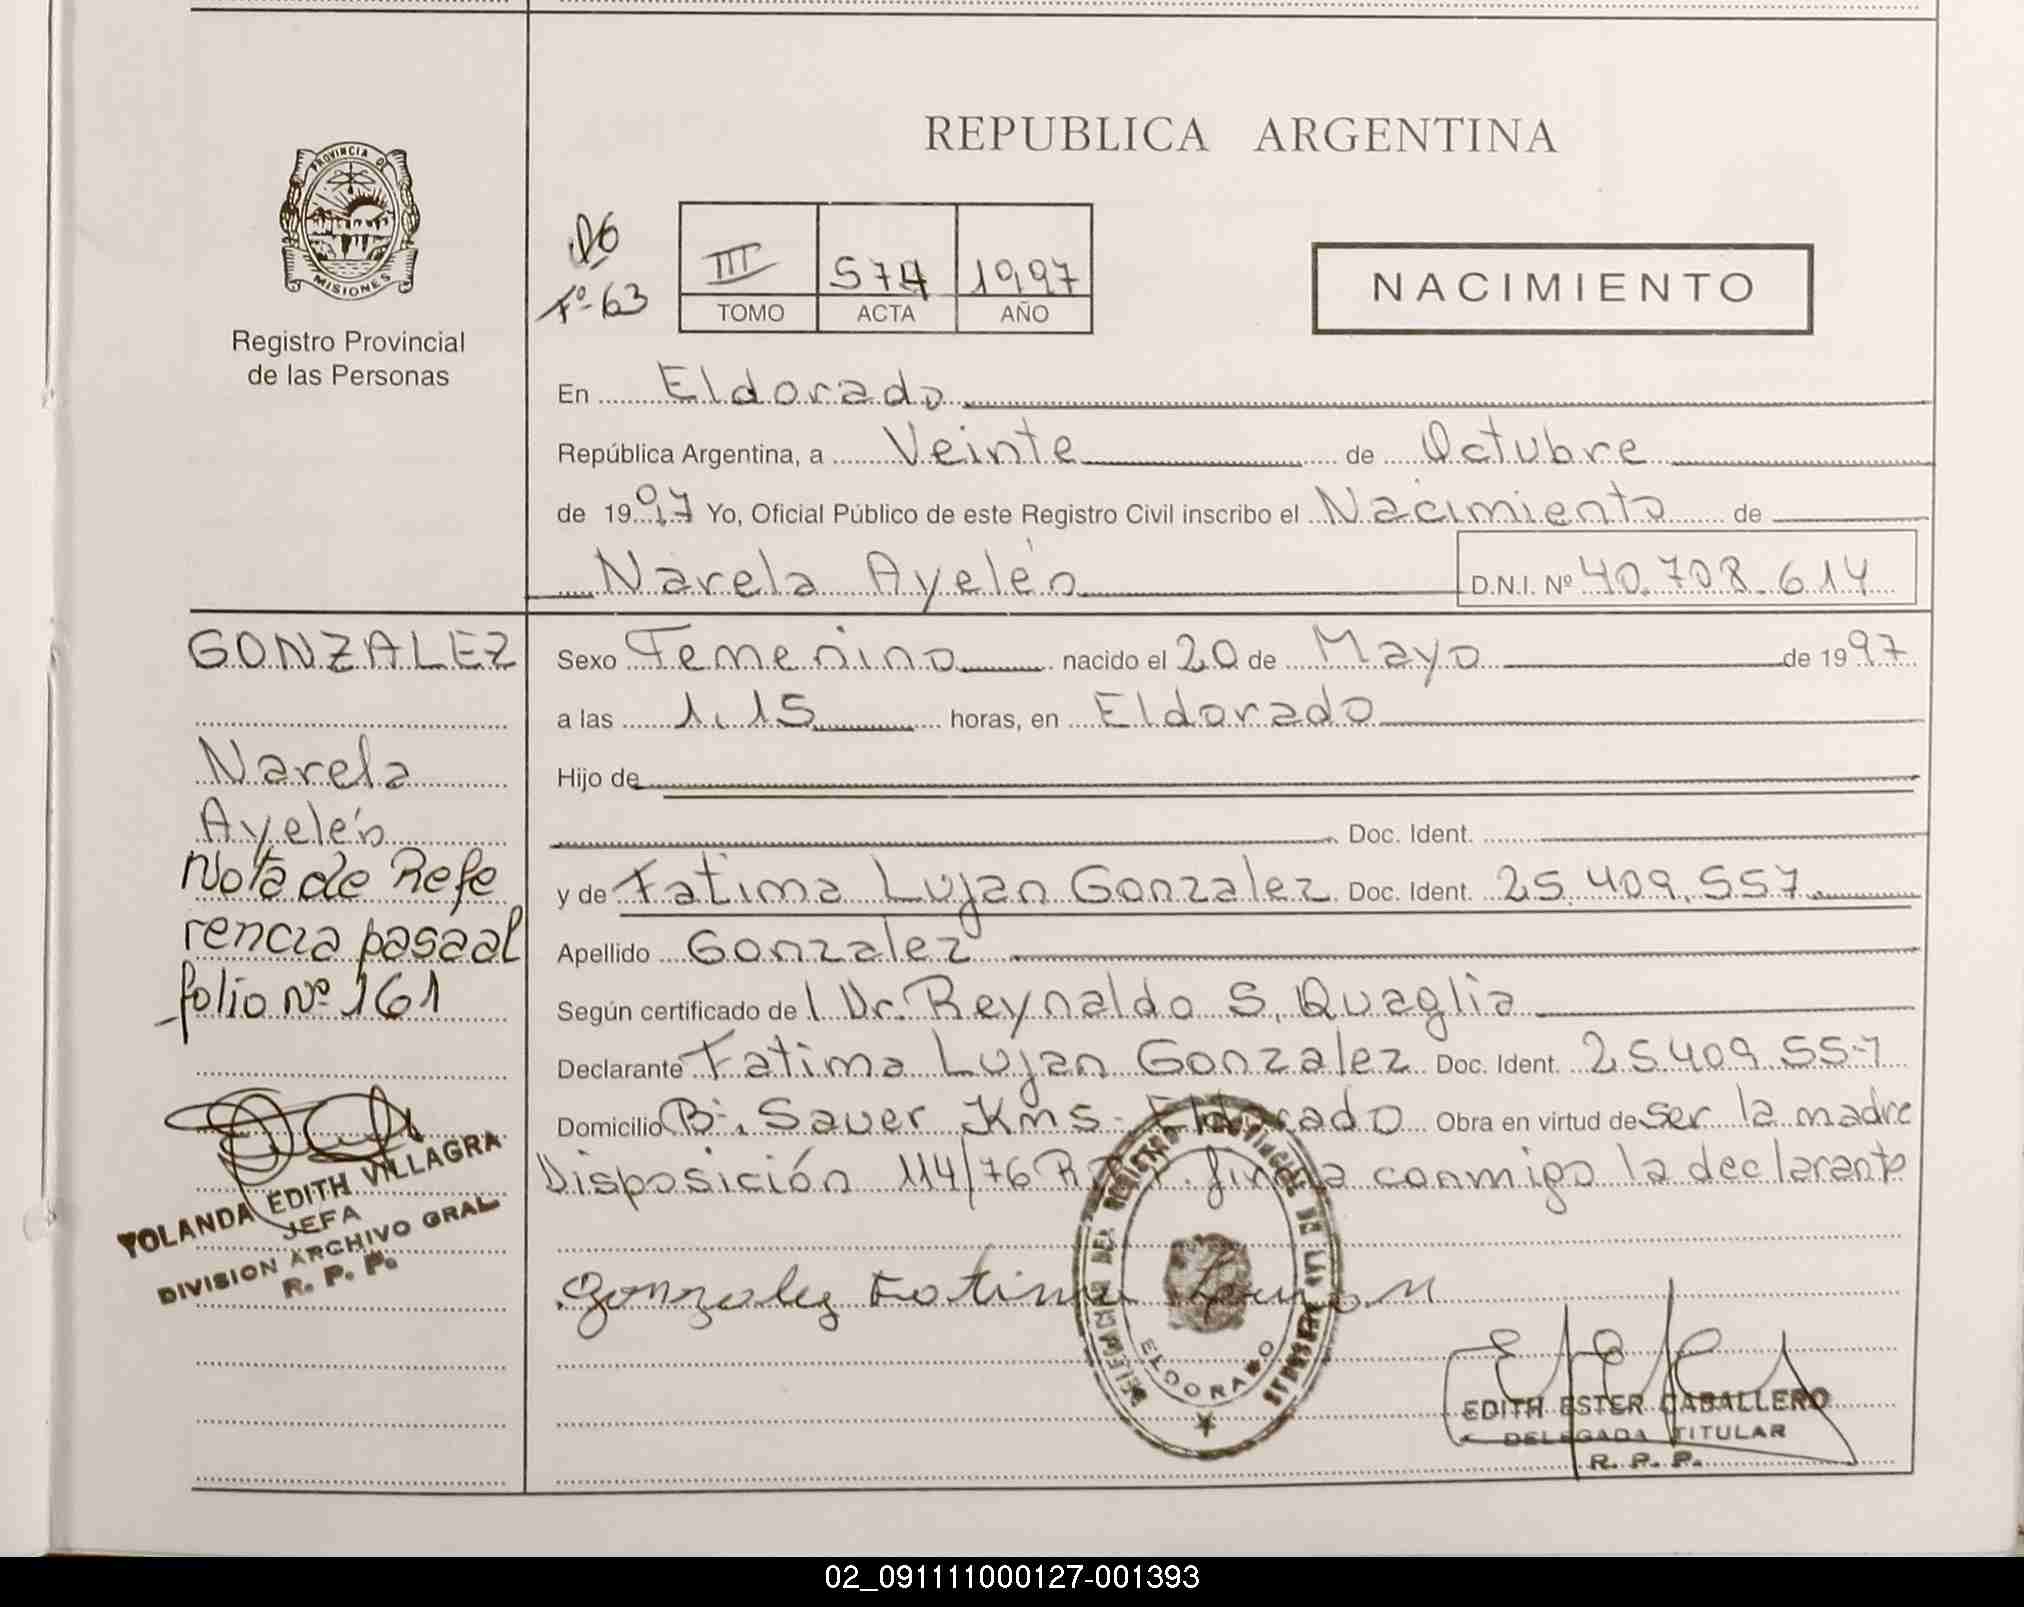 REPUBLICA ARGENTINA
PROVINCIA DE
MISIONES
Registro Provincial
de las Personas
Fº 63
III 574 1997
TOMO ACTA AÑO
NACIMIENTO
En Eldorado
República Argentina, a Veinte de Octubre
de 1997 Yo, Oficial Público de este Registro Civil inscribo el Nacimiento de
Narela Ayelén D.N.I. Nº 40.708.614
GONZALEZ
Narela
Ayelén
Nota de Refe
rencia pasa al
folio Nº 161
YOLANDA EDITH VILLAGRA
JEFA
DIVISION ARCHIVO GRAL
R. P. P.
Sexo Femenino nacido el 20 de Mayo de 1997
a las 1.15 horas, en Eldorado
Hijo de
Doc. Ident.
y de Fatima Lujan Gonzalez Doc. Ident. 25.409.557
Apellido Gonzalez
Según certificado de l Dr. Reynaldo S. Quaglia
Declarante Fatima Lujan Gonzalez Doc. Ident. 25.409.557
Domicilio Bº. Sauer Eldorado Obra en virtud de ser la madre
Disposición 114/76 firma conmigo la declarante
Gonzalez Fatima Lujan
ELDORADO
EDITH ESTER CABALLERO
DELEGADA TITULAR
R. P. P.
02_091111000127-001393